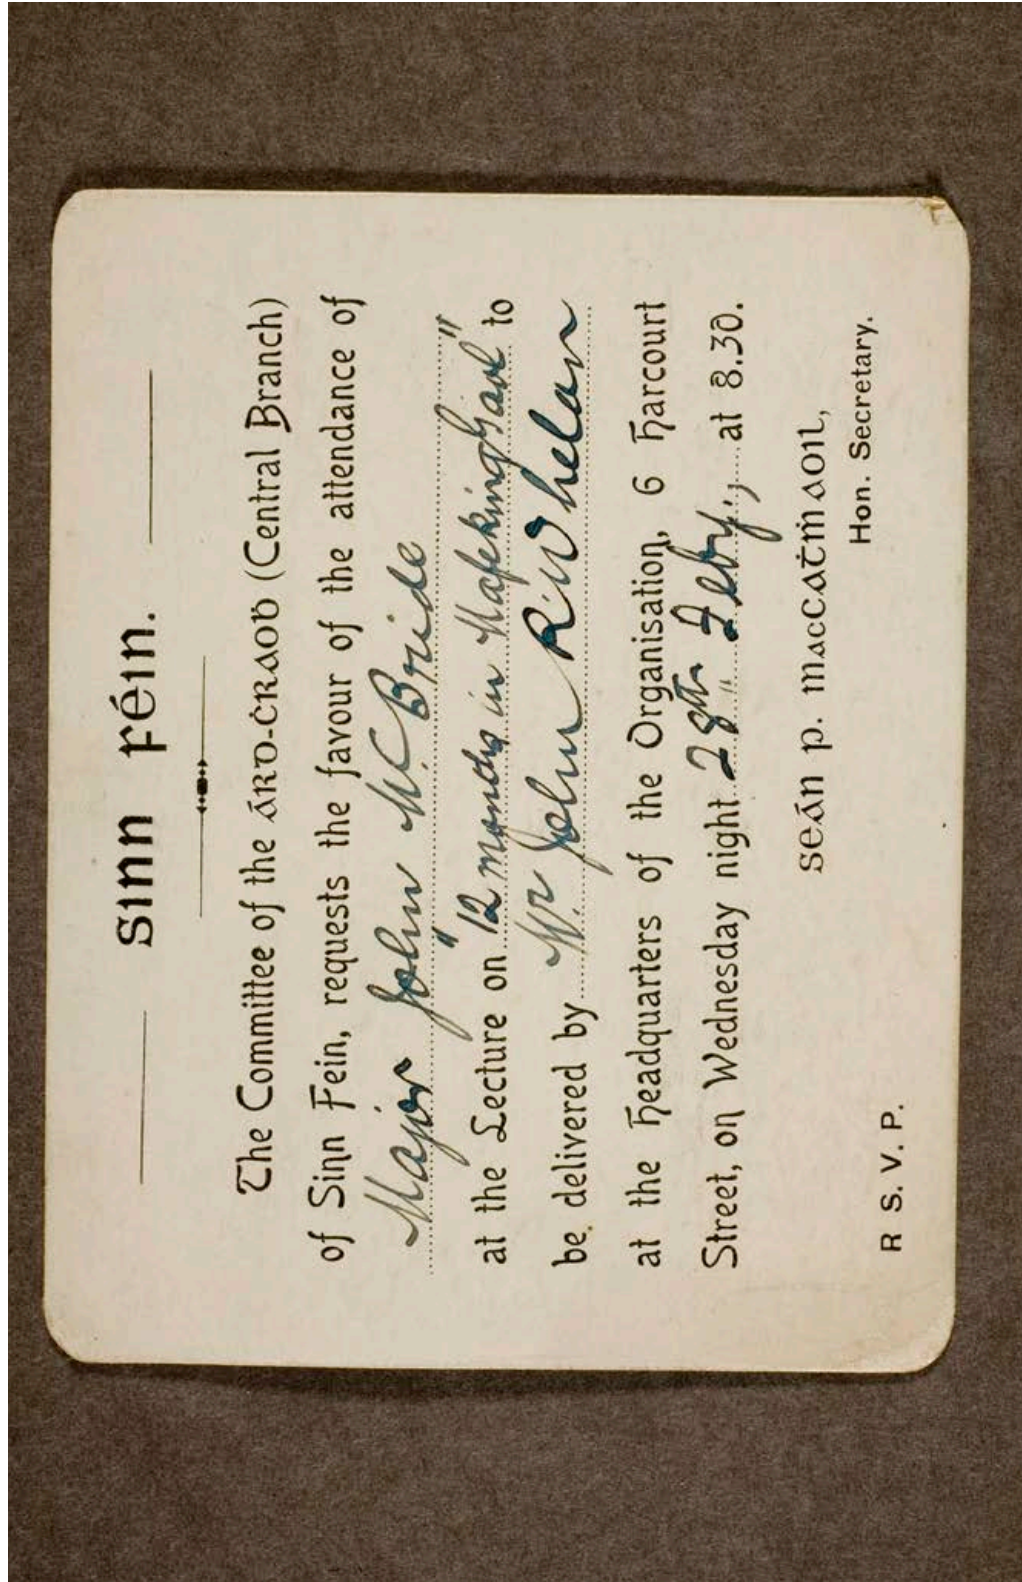 Sinn Féin.
The Committee of the ÁRD-ĊRAOḂ (Central Branch)
of Sinn Fein, requests the favour of the attendance of
Major John McBride
at the Lecture on "12 months in Mafeking Gaol" to
be delivered by Mr John R. Whelan
at the Headquarters of the Organisation, 6 Harcourt
Street, on Wednesday night 28th Feby., at 8.30.
seán p. maccaṫṁaoil,
Hon. Secretary.
R S. V. P.